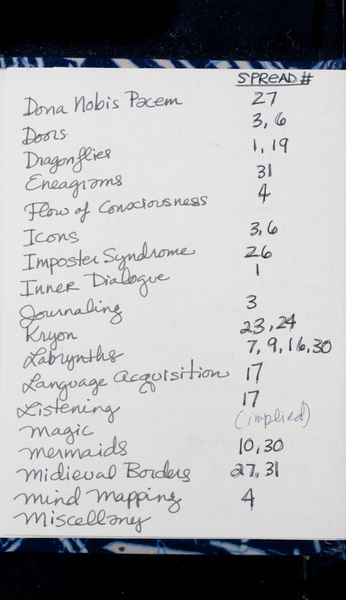 SPREAD #
Dona Nobis Pacem 27
Doors 3, 6
Dragonflies 1, 19
Eneagrams 31
Flow of Consciousness 4
Icons 3, 6
Imposter Syndrome 26
Inner Dialogue 1
Journaling 3
Kryon 23, 24
Labrynths 7, 9, 16, 30
Language Acquisition 17
Listening 17
Magic (implied)
Mermaids 10, 30
Midieval Borders 27, 31
Mind Mapping 4
Miscellany